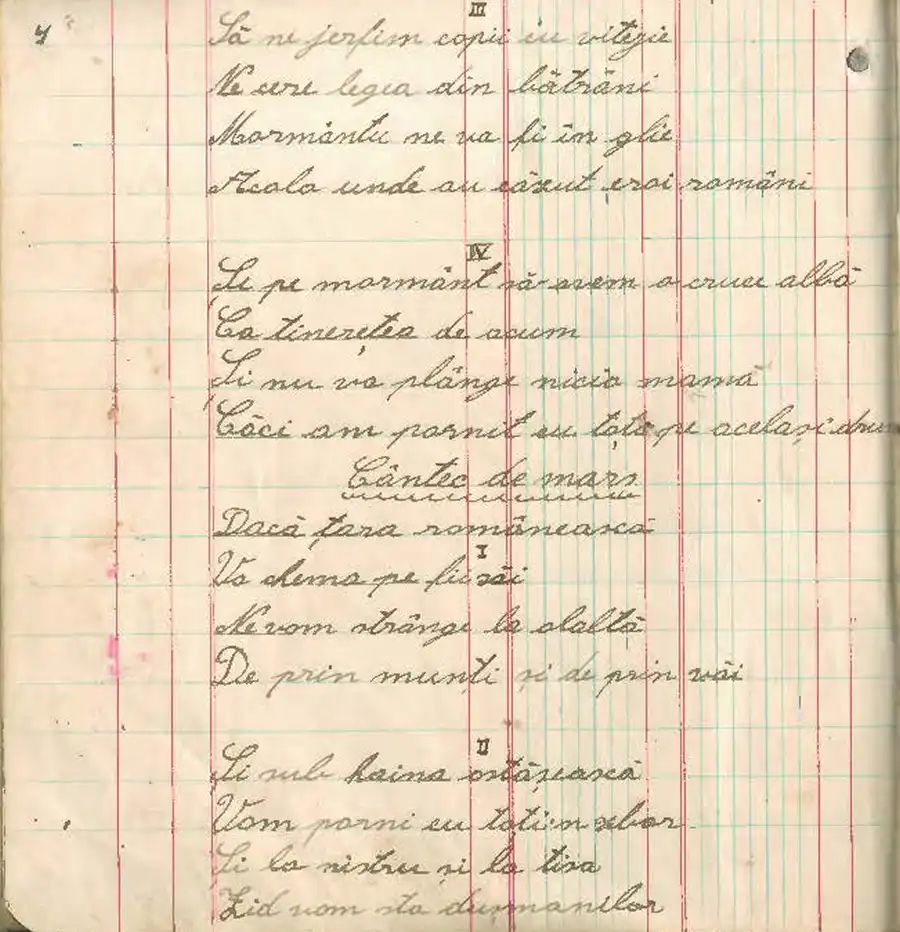 III
4
Să ne jerfim copii cu vitezie
Ne cere legea din bătrâni
Mormântu ne va fi în glie
Acolo unde au căzut eroi români
IV
Și pe mormânt să avem o cruce albă
Ca tinerețea de acum
Și nu va plânge nicio mamă
Căci am pornit cu toți pe același drum
Cântec de marș
Dacă țara românească
I
Va chema pe fii săi
Ne vom strânge la olaltă
De prin munți și de prin văi
II
Și sub haina ostășească
Vom porni cu toți în sbor
Și la nistru și la tisa
Zid vom sta dușmanilor